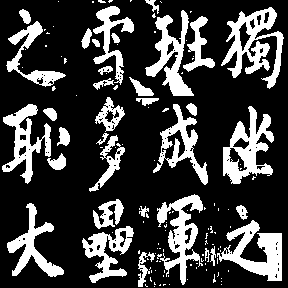 獨坐之
班成軍
雪多壘
之恥大